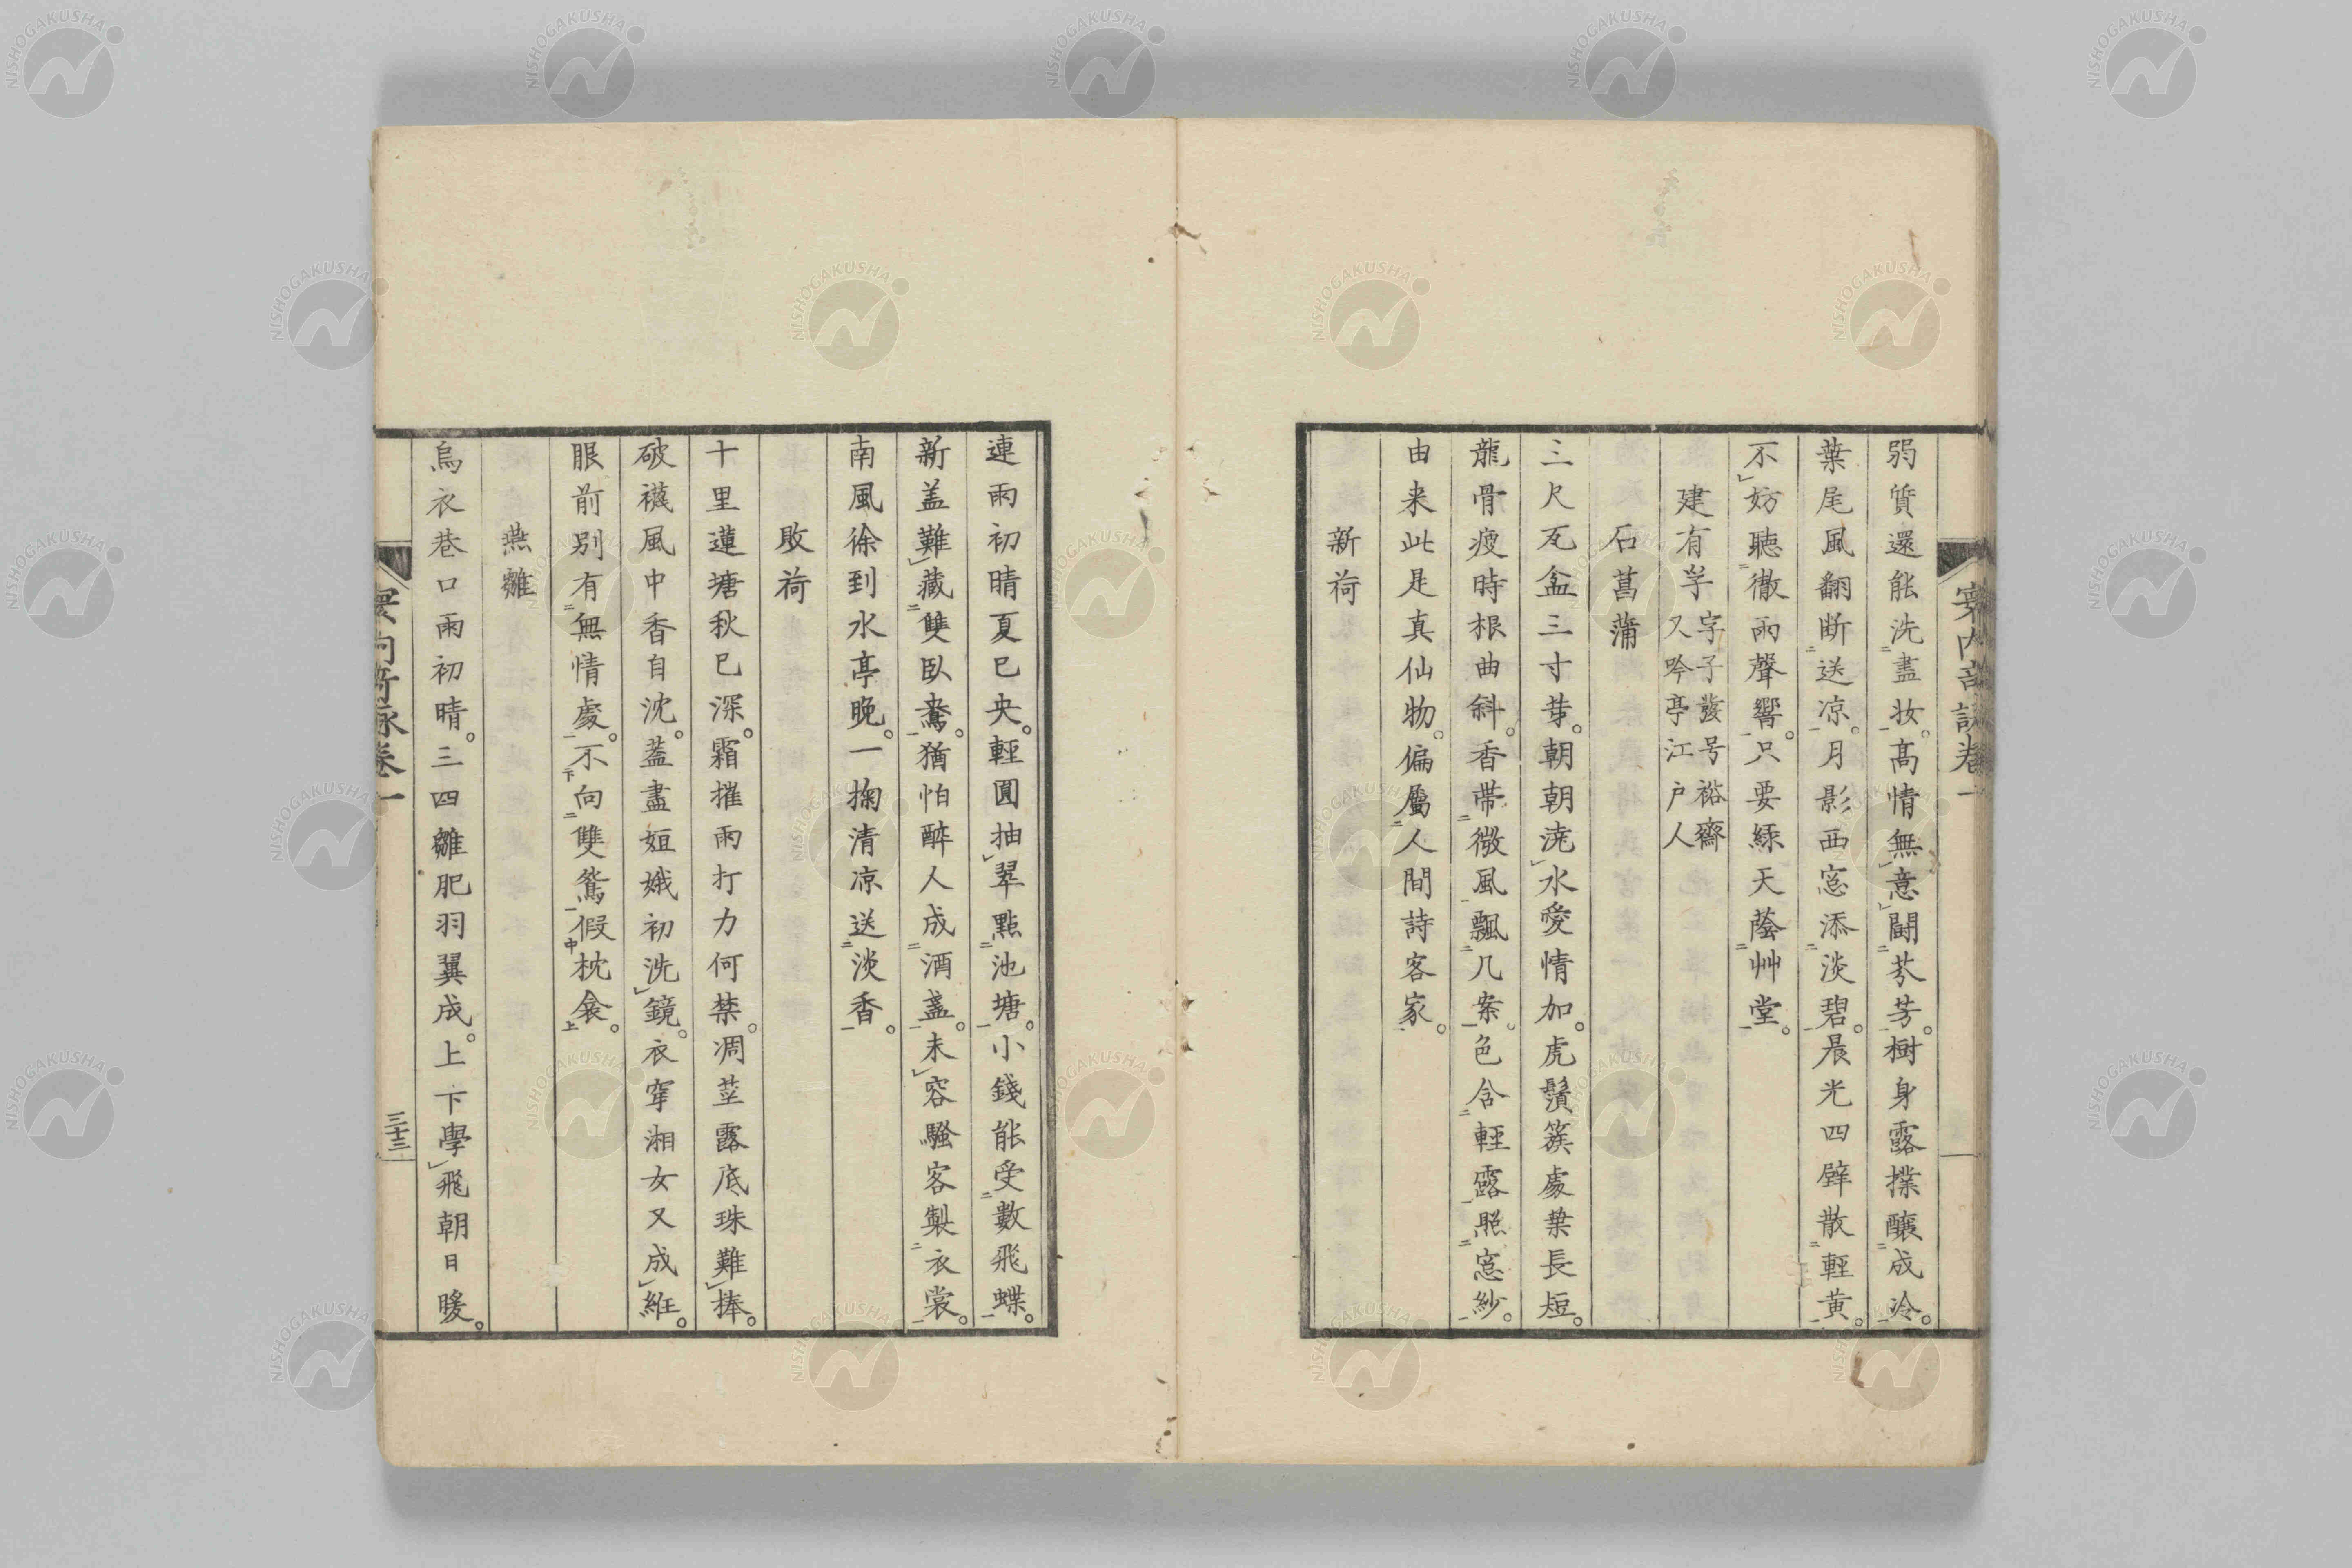 弱質還能洗盡妝。高情無意鬪芬芳。樹身露揲釀成冷。
葉尾風翻断送凉。月影西窓添淡碧。晨光四壁散輕黄。
不妨聽徹雨聲響。只要緑天蔭艸堂。
建有孚 字子發号裕齋
又吟亭江户人
石菖蒲
三尺瓦盆三寸芽。朝朝澆水愛情加。虎鬚簇處葉長短。
龍骨瘦時根曲斜。香帯微風飄几案。色含輕露照窓紗。
由来此是真仙物。偏屬人間詩客家。
新荷
連雨初晴夏已央。輕圓抽翠點池塘。小錢能受數飛蝶。
新盖難藏雙臥鴦。猶怕醉人成酒盞。未容騷客製衣裳。
南風徐到水亭晩。一掬清凉送淡香。
敗荷
十里蓮塘秋已深。霜摧雨打力何禁。凋莖露底珠難捧。
破襪風中香自沈。蓋盡姮娥初洗鏡。衣穿湘女又成紝。
眼前別有無情處。不向雙鴛假枕衾。
燕雛
烏衣巷口雨初晴。三四雛肥羽翼成。上下學飛朝日暖。
寰内奇詠卷一
三十三
NISHOGAKUSHA